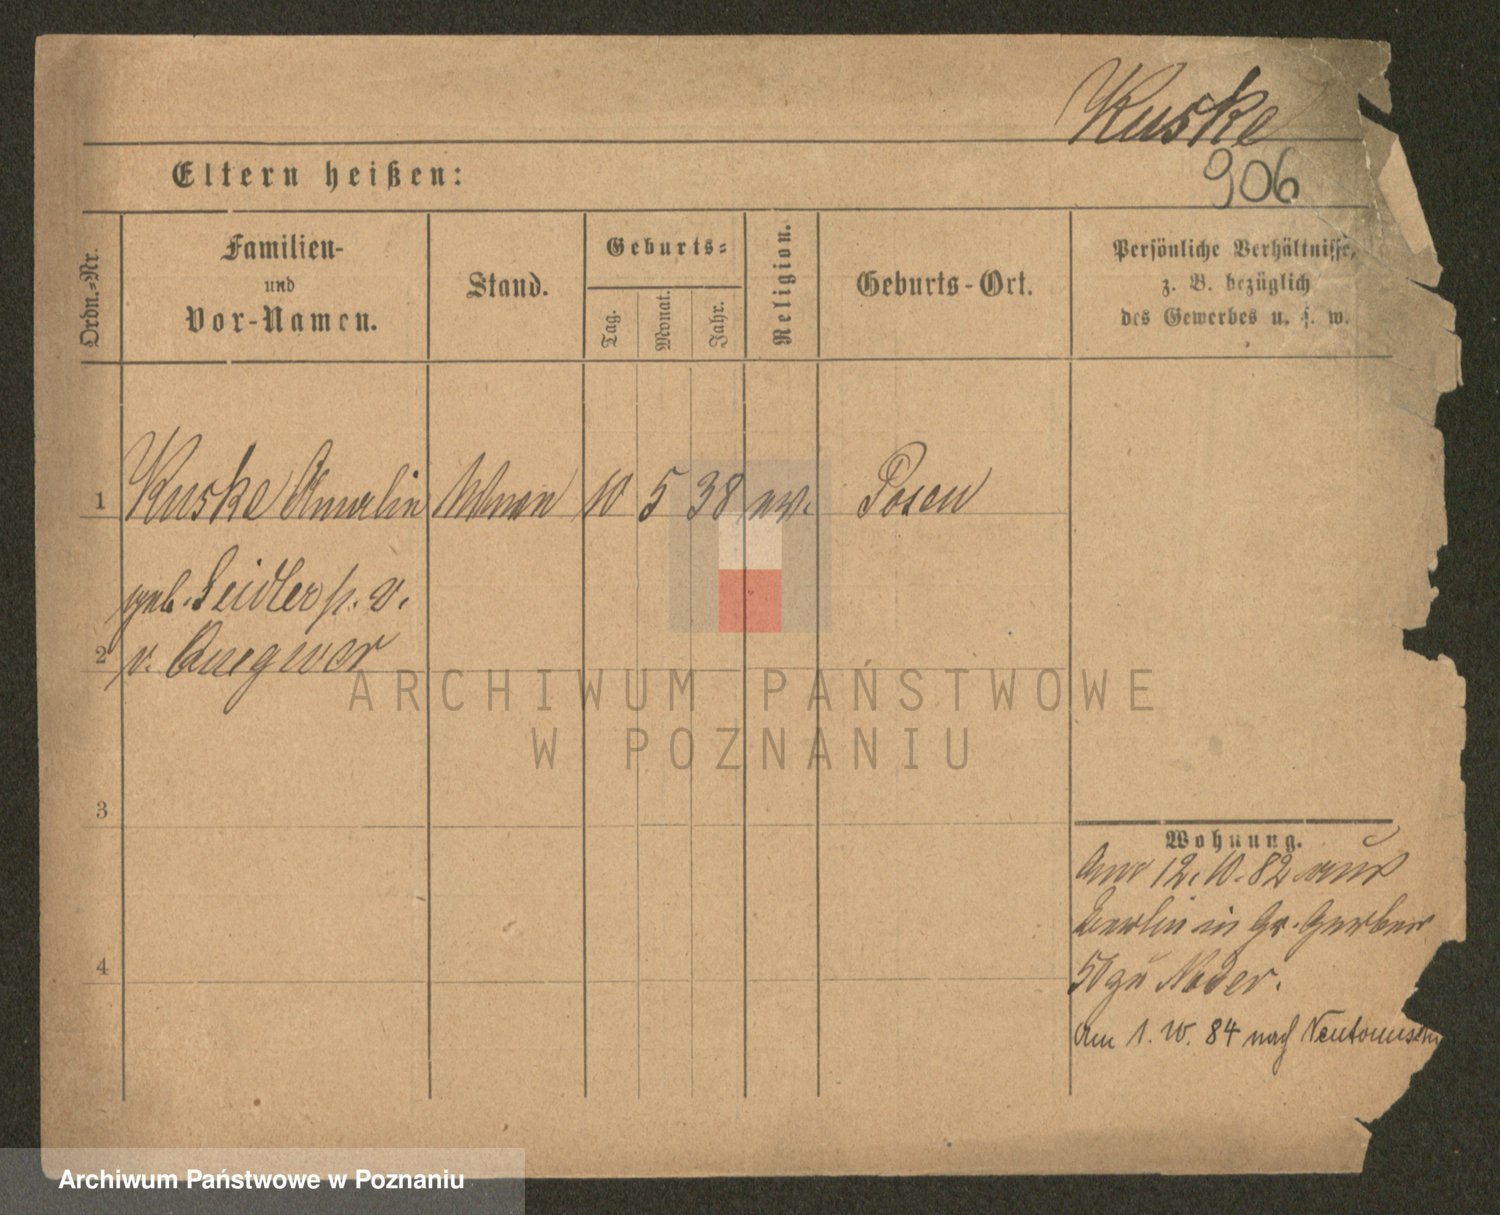 Kuske
906
Eltern heißen:
Ordn.-Nr.
Familien-
und
Vor-Namen.
Stand.
Geburts-
Tag.
Monat.
Jahr.
Religion.
Geburts-Ort.
Persönliche Verhältnisse,
z. B. bezüglich
des Gewerbes u. s. w.
1 Kuske Amalie 10 5 38 ev. Posen
geb. Seidler
2
3
4
Wohnung.
Am 12. 10. 82 aus
Berlin in Gr. Gerber
50 zu Nader.
Am 1. 10. 84 nach
ARCHIWUM PAŃSTWOWE
W POZNANIU
Archiwum Państwowe w Poznaniu